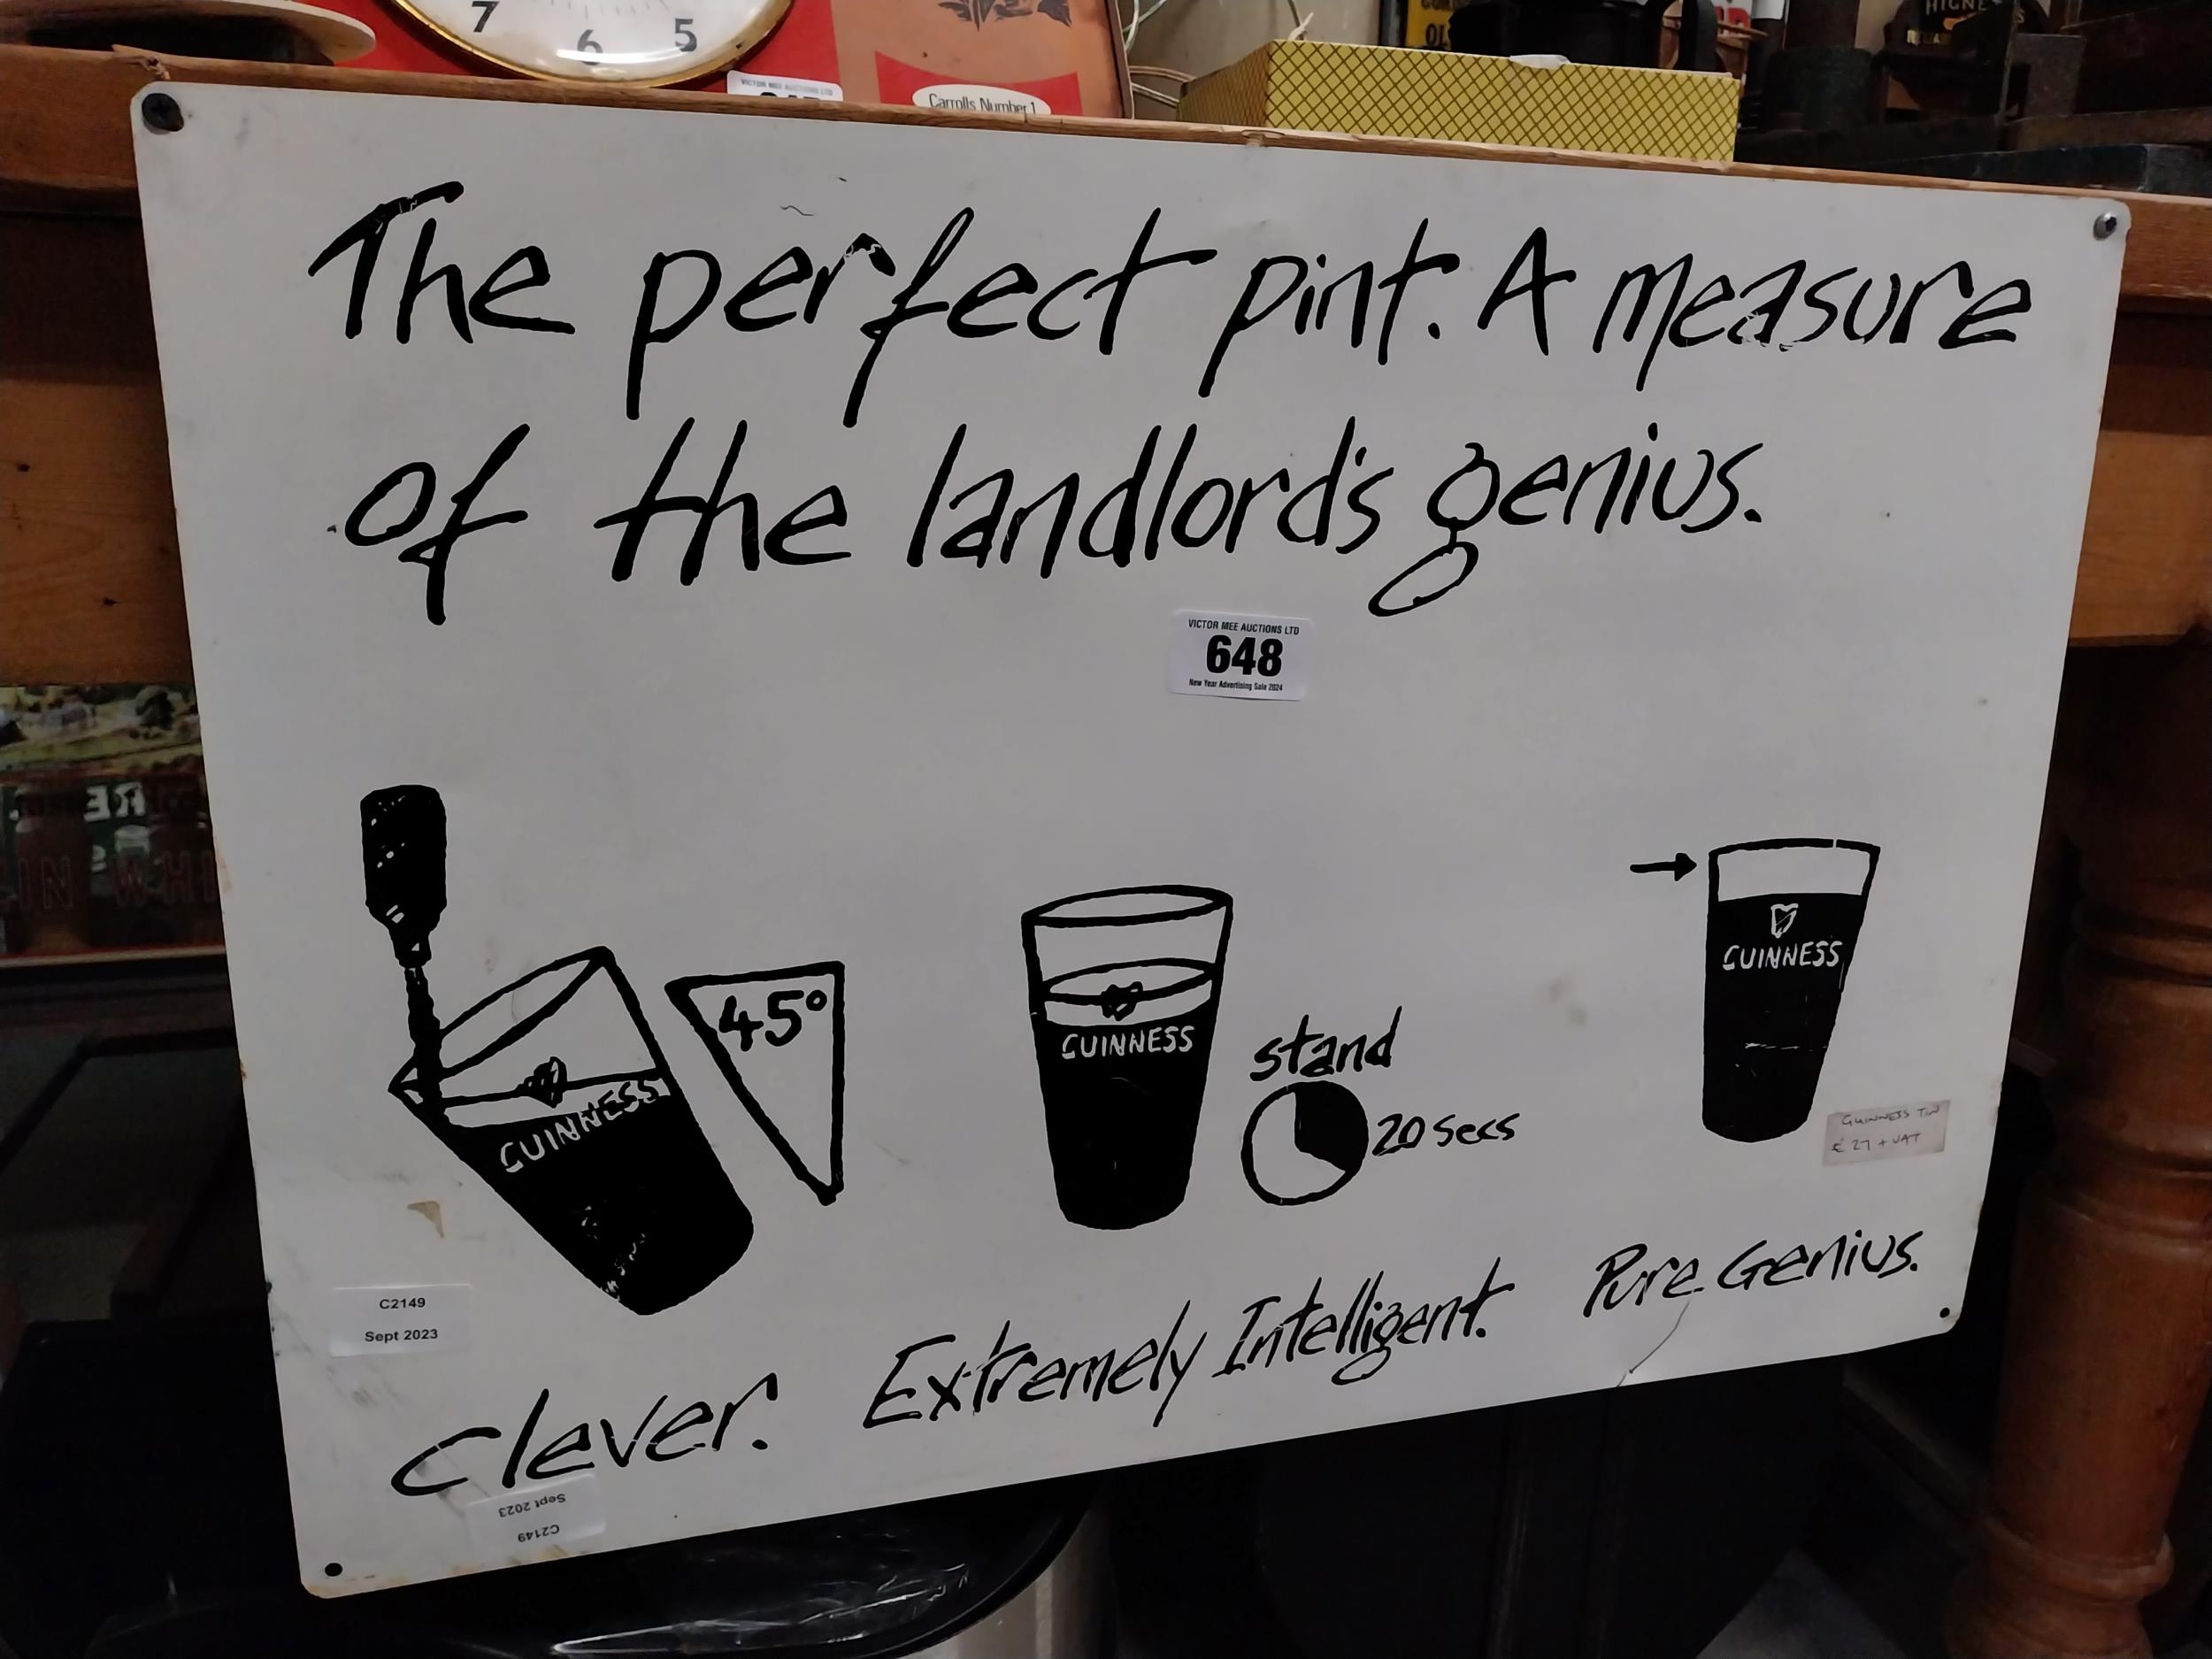 7 6 5
VICTOR MEE AUCTIONS LTD
Carrolls Number 1
The perfect pint. A measure
of the landlord's genius.
VICTOR MEE AUCTIONS LTD
648
New Year Advertising Sale 2024
45°
GUINNESS
GUINNESS
stand
20 secs
GUINNESS
GUINNESS TIN
£27 + VAT
C2149
Sept 2023
Clever. Extremely Intelligent. Pure Genius.
C2149
Sept 2023